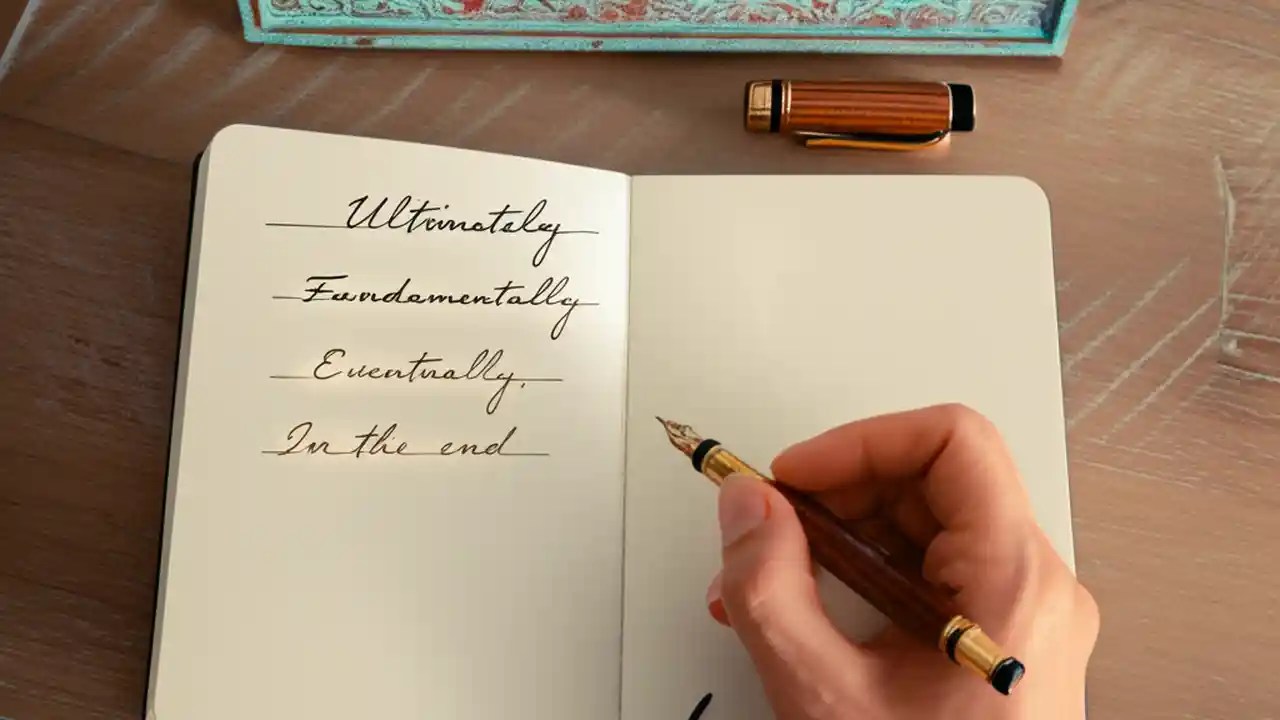 Ultimately
Fundamentally
Eventually,
In the end